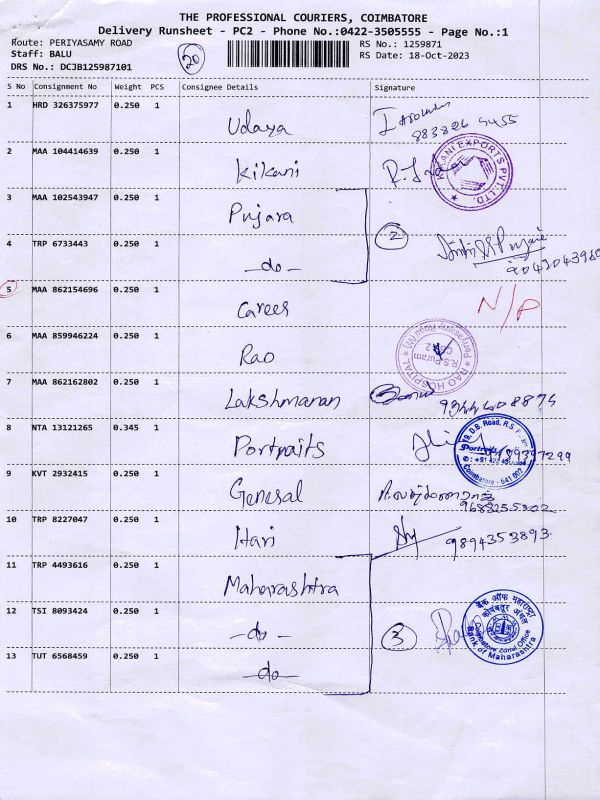 THE PROFESSIONAL COURIERS, COIMBATORE
Delivery Runsheet - PC2 - Phone No.:0422-3505555 - Page No.:1
Route: PERIYASAMY ROAD
Staff: BALU
DRS No.: DCJB125987101
20
RS No.: 1259871
RS Date: 18-Oct-2023
S No Consignment No Weight PCS Consignee Details Signature
1 HRD 326375977 0.250 1 Udaya
2 MAA 104414639 0.250 1 Kikani
KIKANI EXPORTS PVT. LTD.
3 MAA 102543947 0.250 1 Pujara
2
4 TRP 6733443 0.250 1 -do-
5 MAA 862154696 0.250 1 Career N/P
6 MAA 859946224 0.250 1 Rao
RAO HOSPITAL Periyasamy Road (W) R.S.Puram CBE-2
7 MAA 862162802 0.250 1 Lakshmanan 9344608874
8 NTA 13121265 0.345 1 Portraits
D.B. Road, R.S. Portraits Coimbatore - 641 002
9 KVT 2932415 0.250 1 General
9688255802
10 TRP 8227047 0.250 1 Hari 9894353893
11 TRP 4493616 0.250 1 Maharashtra
12 TSI 8093424 0.250 1 -do-
3
बैंक ऑफ महाराष्ट्र
कोयंबतूर अंचल
Coimbatore Zonal Office
Bank of Maharashtra
13 TUT 6568459 0.250 1 -do-